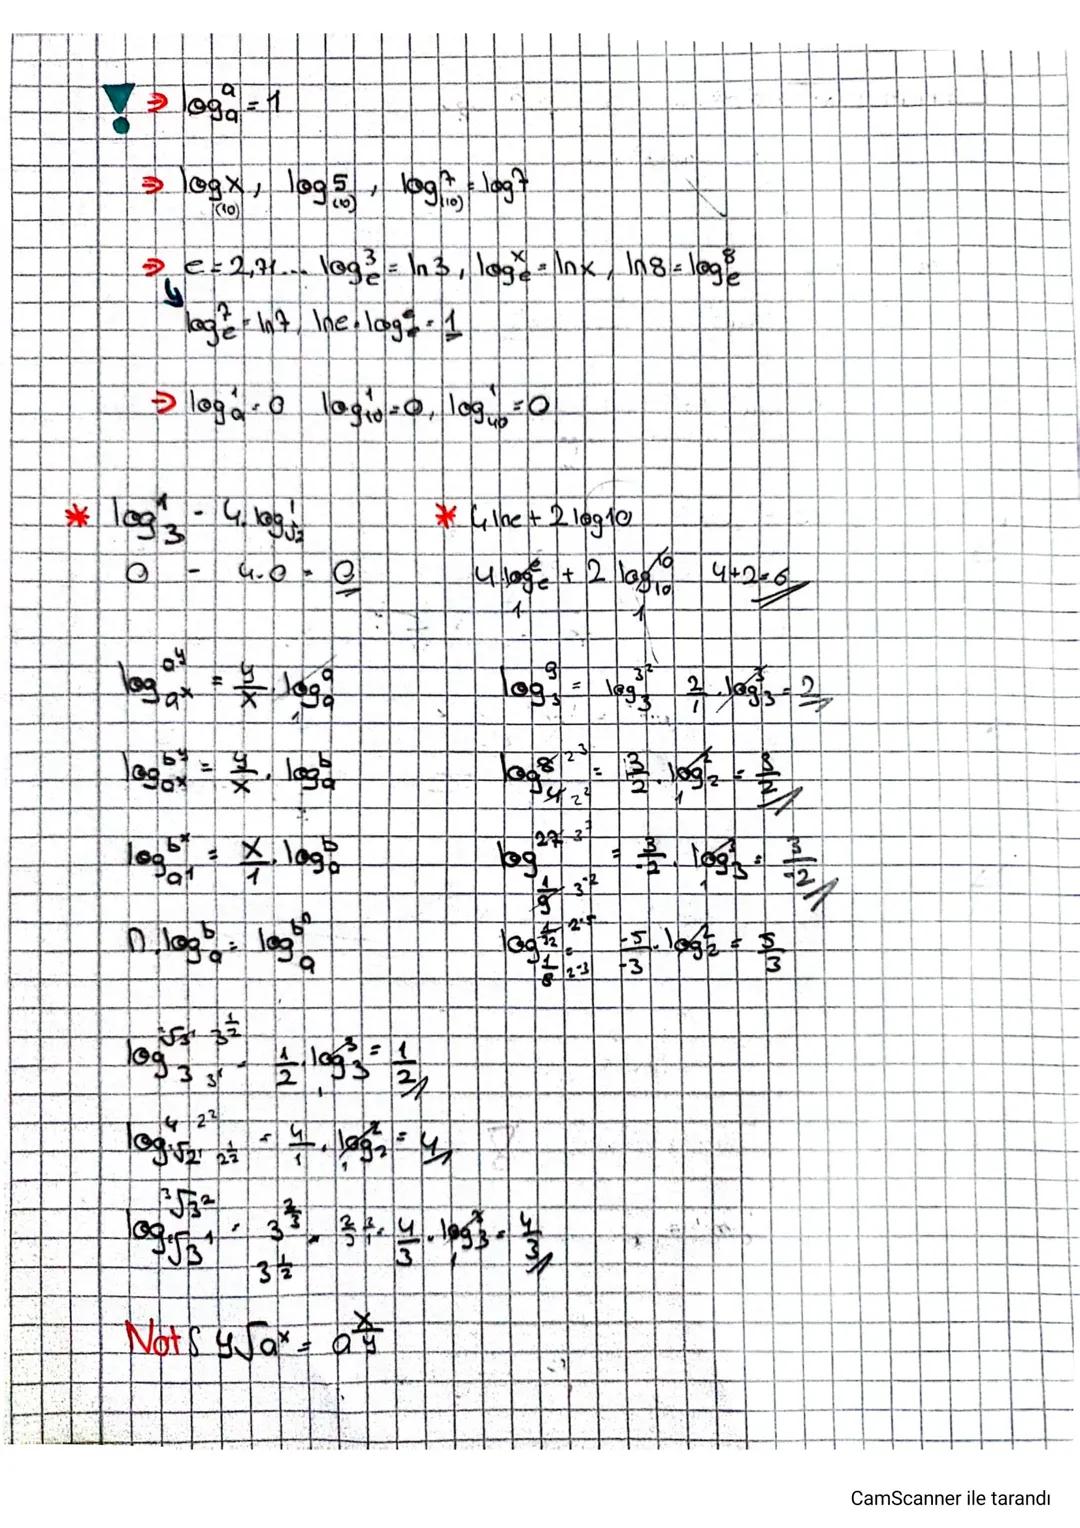 ! ⇒ logₐᵃ = 1
⇒ log x (10), log 5 (10), log⁷ (10) = log 7
⇒ e = 2,71... logₑ³ = ln 3, logₑˣ = ln x, ln 8 = logₑ⁸
logₑ⁷ = ln 7, ln e = logₑᵉ = 1
⇒ logₐ¹ = 0 log₁₀¹ = 0, log₄₀¹ = 0
* log₃¹ - 4.log_√2 ¹
0 - 4.0 = 0
* 4 ln e + 2 log 10
4 logₑᵉ + 2 log₁₀¹⁰ 4+2=6
1 1
log_(a^x) a^y = y/x . logₐᵃ 1
log_(a^x) b^y = y/x . logₐᵇ
log_(a^1) b^x = x/1 . logₐᵇ
n.logₐᵇ = logₐ b^n
log₃⁹ = log₃ 3² 2/1 . log₃³ = 2
log₄⁸ 2³ 2² = 3/2 . log₂² 1 = 3/2
log_(1/9) 27 3³ 3⁻² = 3/-2 . log₃³ 1 = 3/-2
log_(1/8) 1/32 2⁻⁵ 2⁻³ = -5/-3 . log₂² = 5/3
log₃ ²√3¹ 3^(1/2) 3¹ = 1/2 . log₃³ 1 = 1/2
log_(√2¹) 4 2² 2^(1/2) = 4/1 . log₂² 1 = 4
log_(²√3¹) ³√3² = 3^(2/3) 3^(1/2) = 2/3 . 2/1 = 4/3 . log₃³ 1 = 4/3
Not: y√a^x = a^(x/y)
CamScanner ile tarandı